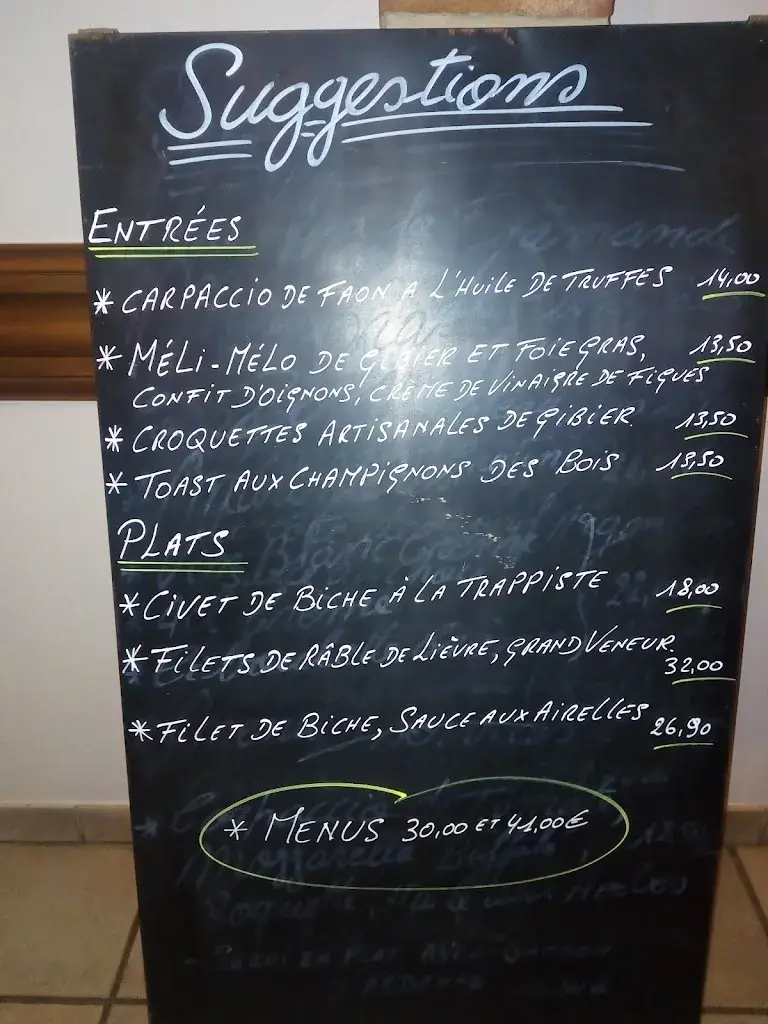 Suggestions
ENTRÉES
* CARPACCIO DE FAON A L'HUILE DE TRUFFES 14,00
* MÉLI-MÉLO DE GIBIER ET FOIE GRAS, 13,50
CONFIT D'OIGNONS, CRÈME DE VINAIGRE DE FIGUES
* CROQUETTES ARTISANALES DE GIBIER. 13,50
* TOAST AUX CHAMPIGNONS DES BOIS 13,50
PLATS
* CIVET DE BICHE À LA TRAPPISTE 18,00
* FILETS DE RÂBLE DE LIÈVRE, GRAND VENEUR.
32,00
* FILET DE BICHE, SAUCE AUX AIRELLES 26,90
* MENUS 30,00 ET 41,00€